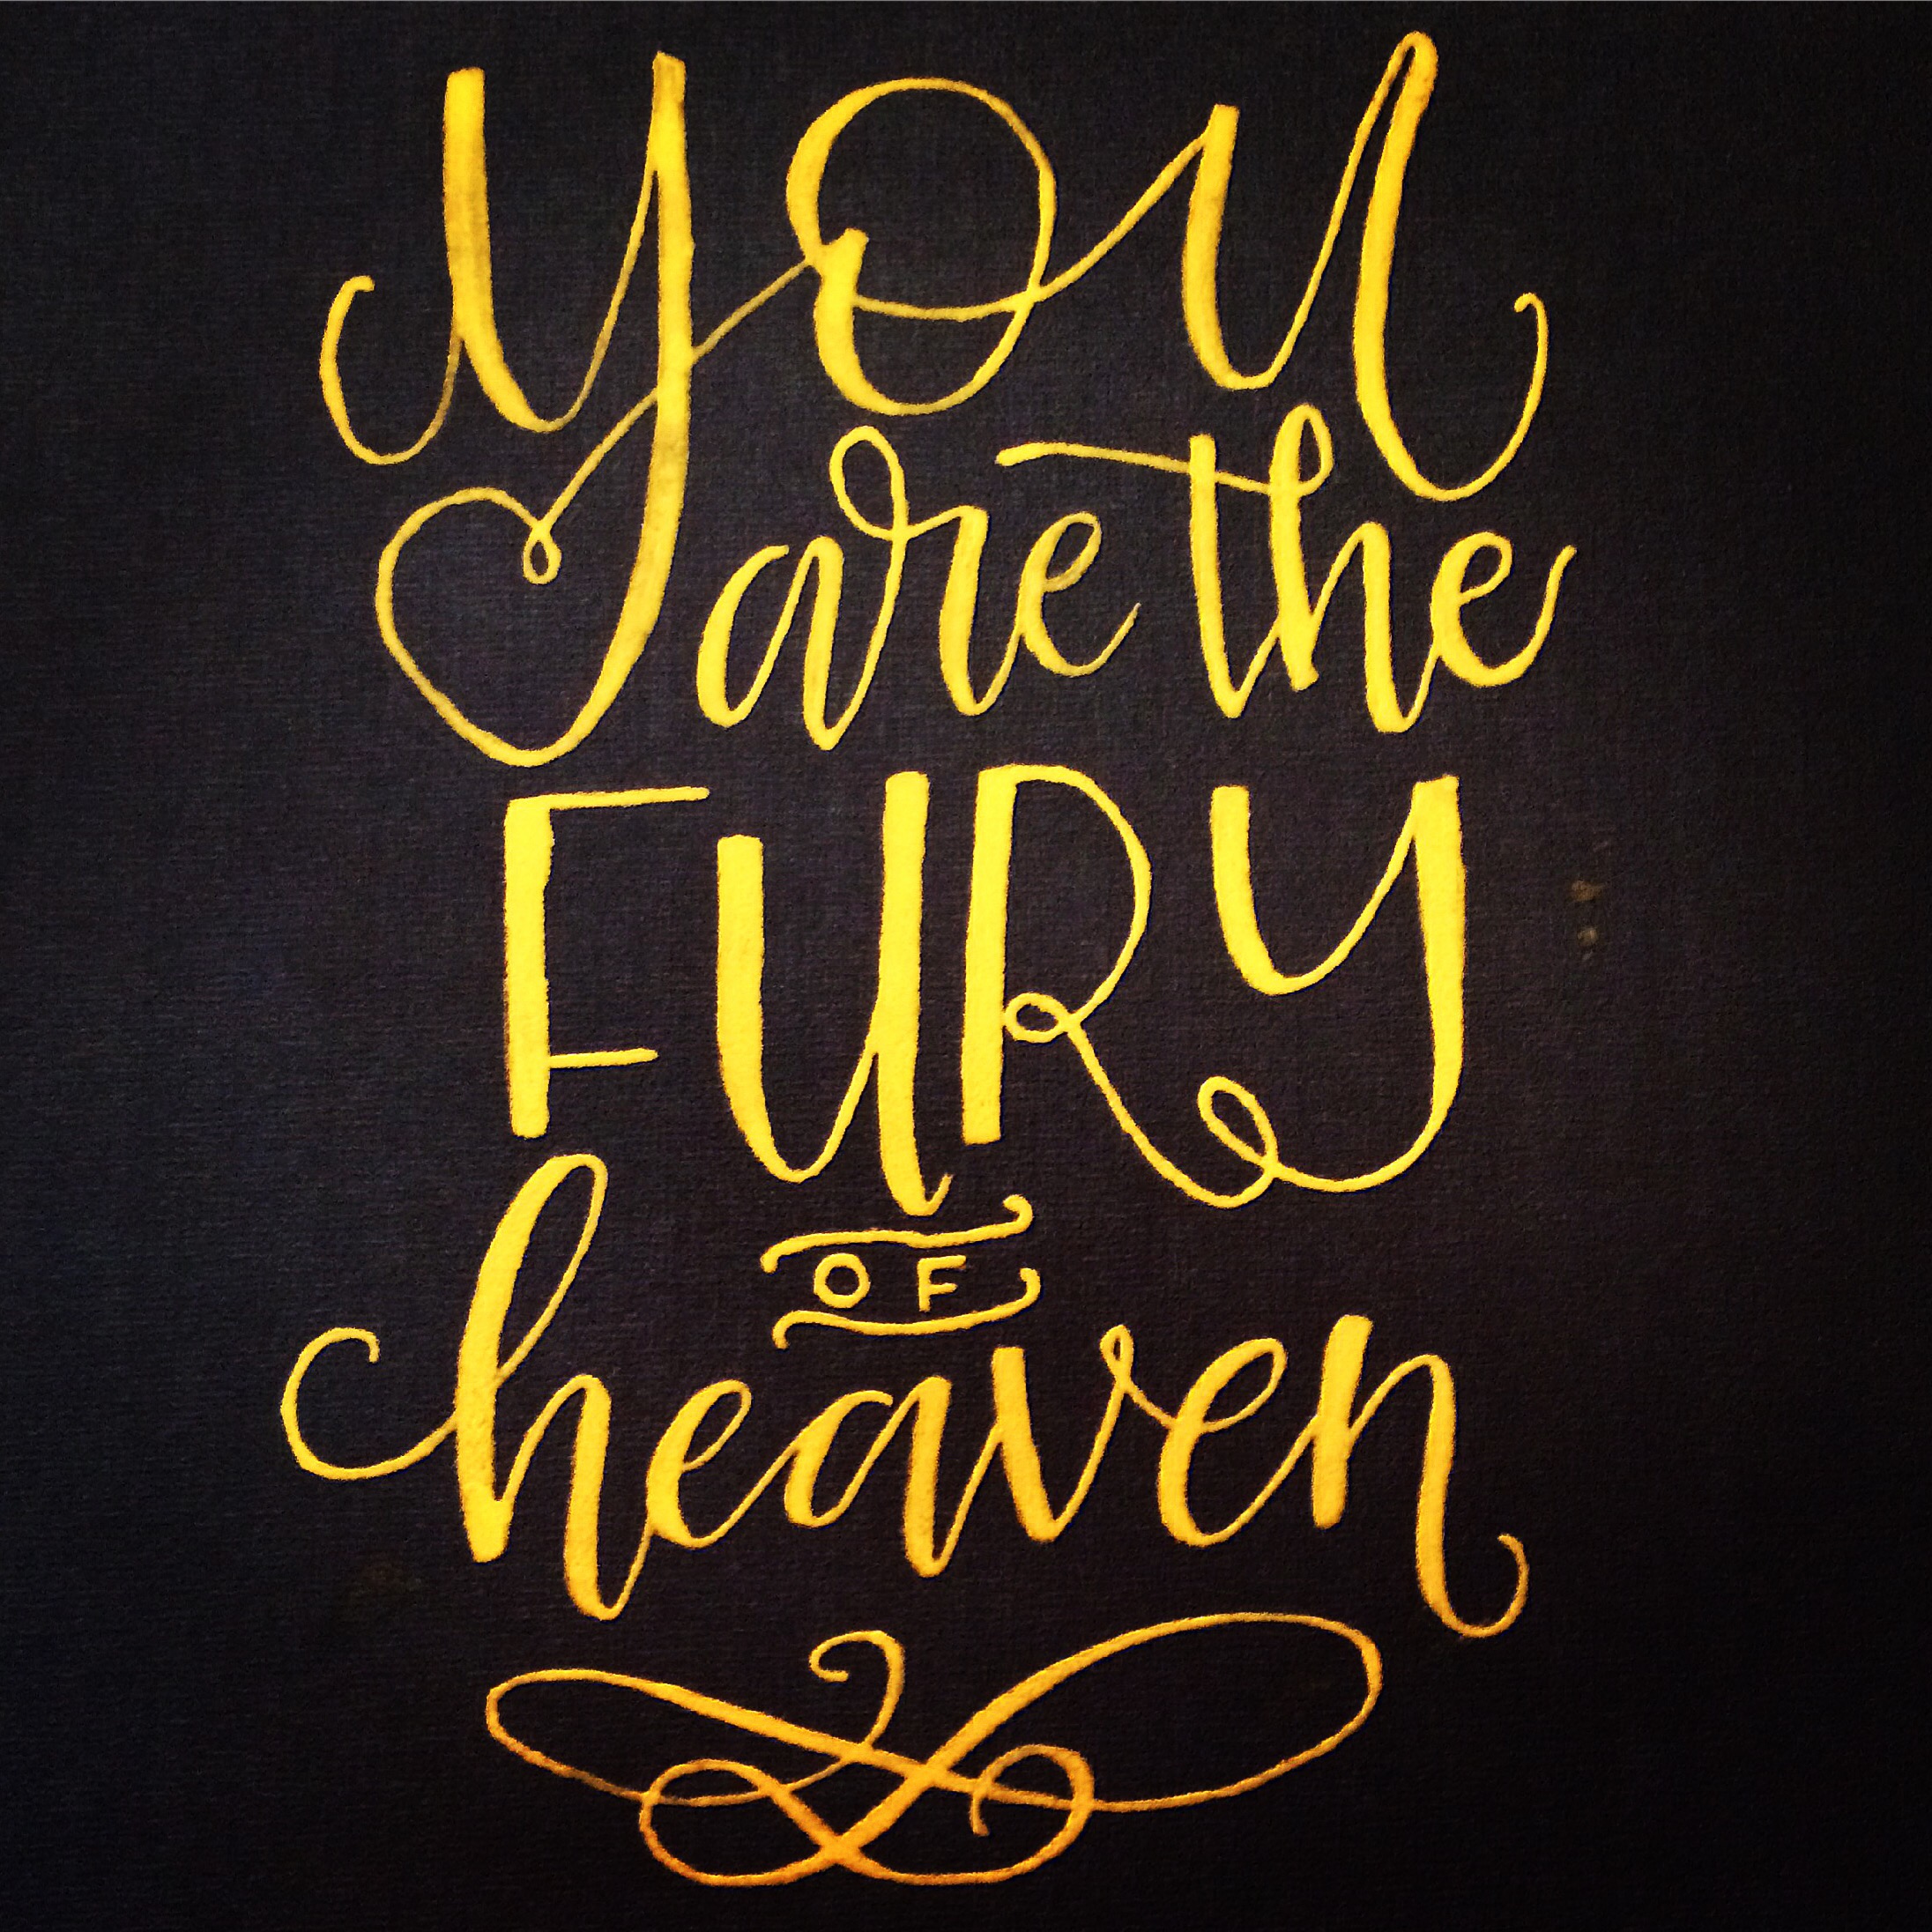 you
are the
FURY
OF
heaven